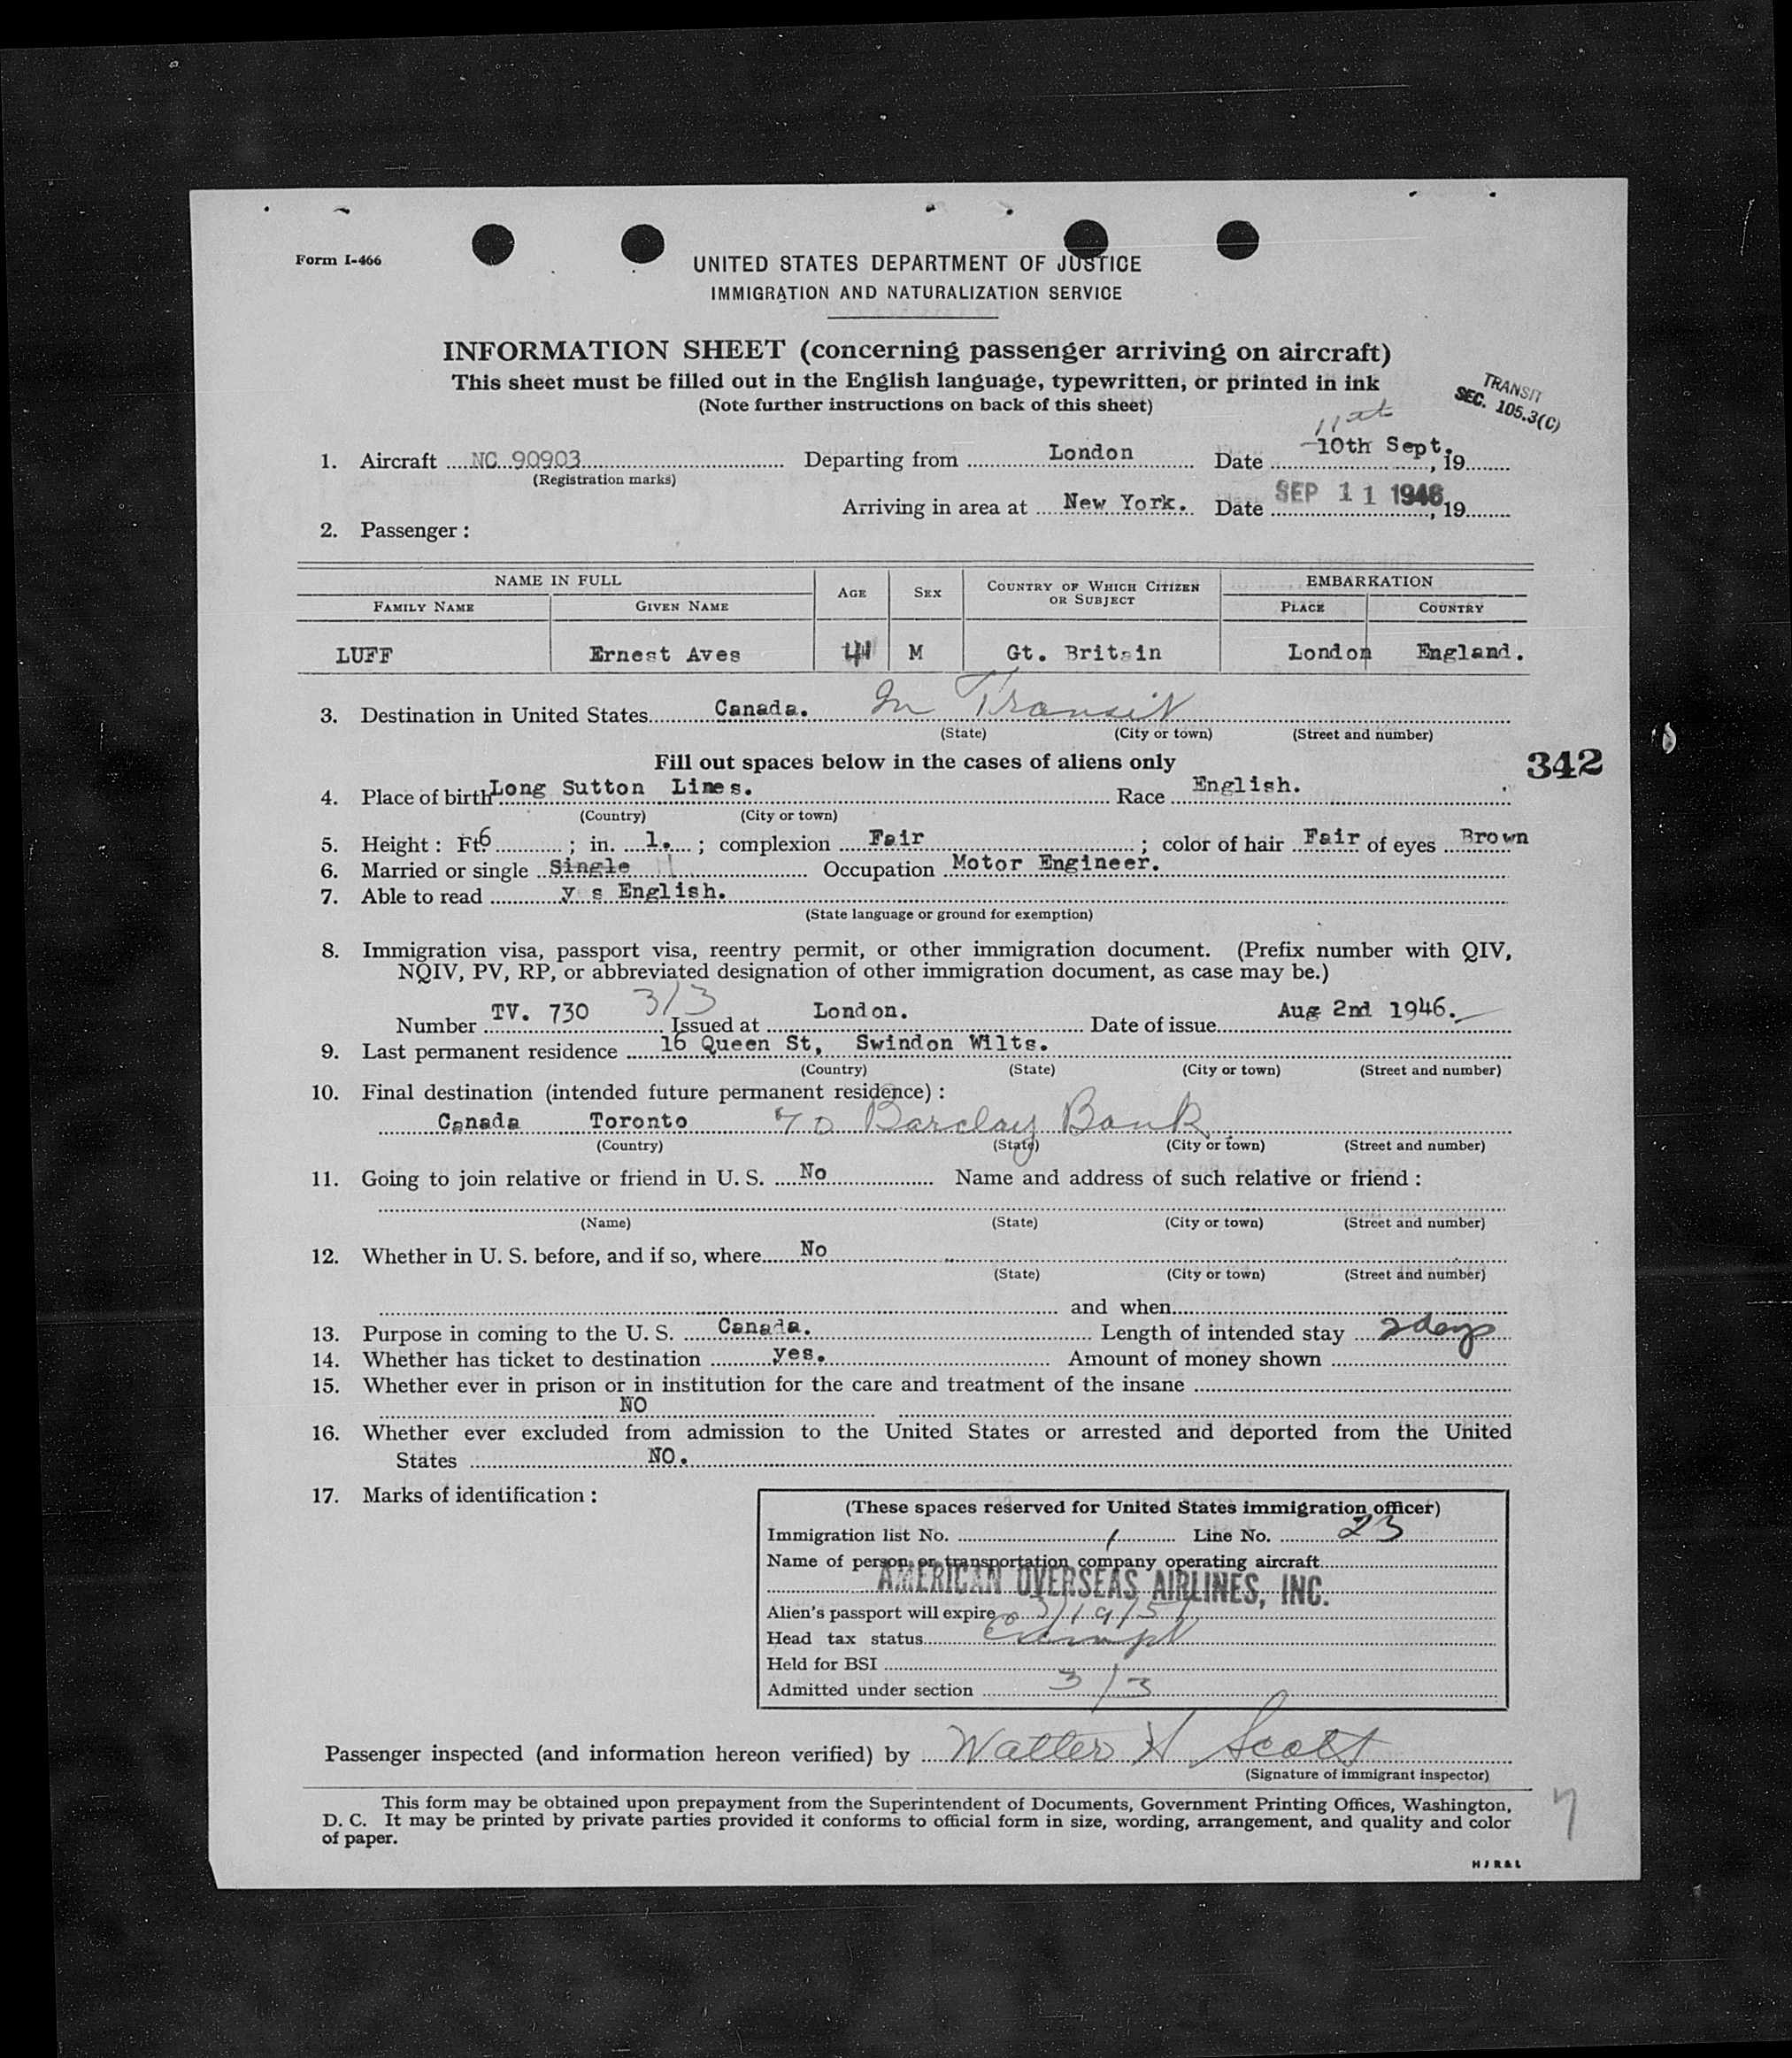 Form I-466
UNITED STATES DEPARTMENT OF JUSTICE
IMMIGRATION AND NATURALIZATION SERVICE
INFORMATION SHEET (concerning passenger arriving on aircraft)
This sheet must be filled out in the English language, typewritten, or printed in ink
(Note further instructions on back of this sheet)
TRANSIT
SEC. 105.3(C)
11th
1. Aircraft NC 90903 Departing from London Date 10th Sept, 19
(Registration marks)
Arriving in area at New York. Date SEP 11 1946, 19
2. Passenger :
NAME IN FULL AGE SEX COUNTRY OF WHICH CITIZEN OR SUBJECT EMBARKATION
FAMILY NAME GIVEN NAME PLACE COUNTRY
LUFF Ernest Aves 41 M Gt. Britain London England.
3. Destination in United States Canada. In Transit
(State) (City or town) (Street and number)
Fill out spaces below in the cases of aliens only
342
4. Place of birth Long Sutton Lines. Race English.
(Country) (City or town)
5. Height : Ft. 6 ; in. 1. ; complexion Fair ; color of hair Fair of eyes Brown
6. Married or single Single Occupation Motor Engineer.
7. Able to read y s English.
(State language or ground for exemption)
8. Immigration visa, passport visa, reentry permit, or other immigration document. (Prefix number with QIV,
NQIV, PV, RP, or abbreviated designation of other immigration document, as case may be.)
3/3
Number TV. 730 Issued at London. Date of issue Aug 2nd 1946.
9. Last permanent residence 16 Queen St, Swindon Wilts.
(Country) (State) (City or town) (Street and number)
10. Final destination (intended future permanent residence) :
Canada Toronto Barclay Bank
(Country) (State) (City or town) (Street and number)
11. Going to join relative or friend in U. S. No Name and address of such relative or friend :
(Name) (State) (City or town) (Street and number)
12. Whether in U. S. before, and if so, where No
(State) (City or town) (Street and number)
and when
13. Purpose in coming to the U. S. Canada. Length of intended stay 2 days
14. Whether has ticket to destination yes. Amount of money shown
15. Whether ever in prison or in institution for the care and treatment of the insane
NO
16. Whether ever excluded from admission to the United States or arrested and deported from the United
States NO.
17. Marks of identification :
(These spaces reserved for United States immigration officer)
Immigration list No. 1 Line No. 23
Name of person or transportation company operating aircraft
AMERICAN OVERSEAS AIRLINES, INC.
Alien's passport will expire
Head tax status Exempt
Held for BSI
Admitted under section 3/3
Passenger inspected (and information hereon verified) by Walter H Scott
(Signature of immigrant inspector)
This form may be obtained upon prepayment from the Superintendent of Documents, Government Printing Offices, Washington,
D. C. It may be printed by private parties provided it conforms to official form in size, wording, arrangement, and quality and color
of paper.
7
H J R & L